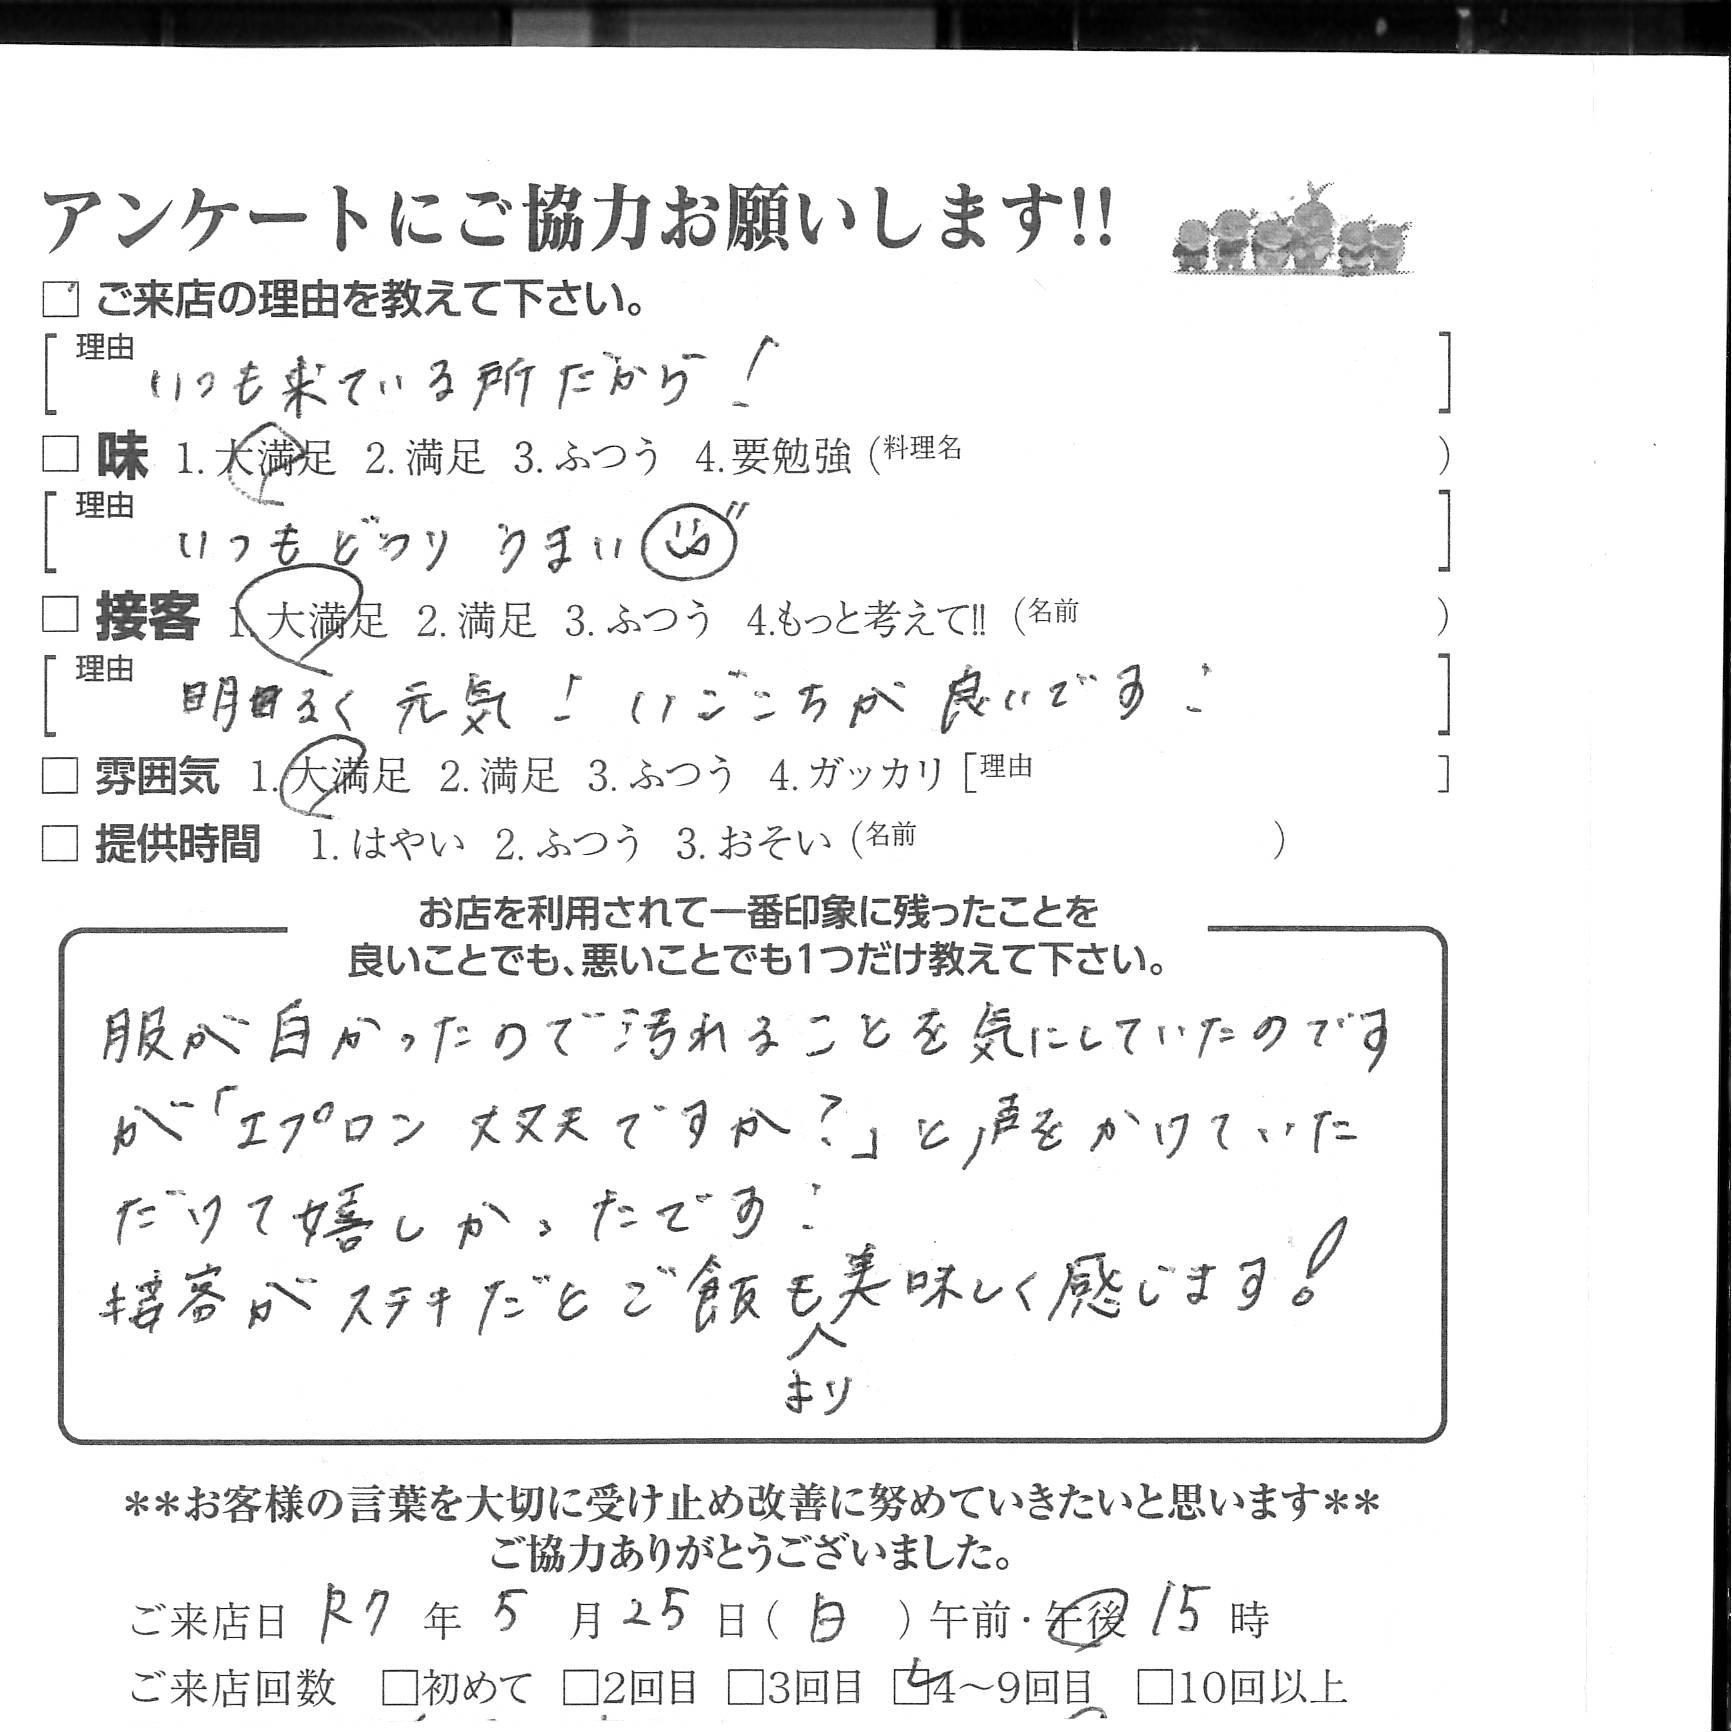 アンケートにご協力お願いします!!
□ ご来店の理由を教えて下さい。
[理由 いつも来ている所だから! ]
□ 味 1. 大満足 2. 満足 3. ふつう 4. 要勉強 (料理名 )
[理由 いつもどうり うまい ]
□ 接客 1. 大満足 2. 満足 3. ふつう 4.もっと考えて!! (名前 )
[理由 明るく 元気! いごこちが 良いです! ]
□ 雰囲気 1. 大満足 2. 満足 3. ふつう 4. ガッカリ [理由 ]
□ 提供時間 1. はやい 2. ふつう 3. おそい (名前 )
お店を利用されて一番印象に残ったことを
良いことでも、悪いことでも1つだけ教えて下さい。
服が白かったので汚れることを気にしていたのです
が「エプロン 大丈夫ですか?」と声をかけていた
だけて嬉しかったです!
接客がステキだとご飯も美味しく感じます!
より
**お客様の言葉を大切に受け止め改善に努めていきたいと思います**
ご協力ありがとうございました。
ご来店日 R7 年 5 月 25 日 ( 日 ) 午前・午後 15 時
ご来店回数 □初めて □2回目 □3回目 □4〜9回目 □10回以上